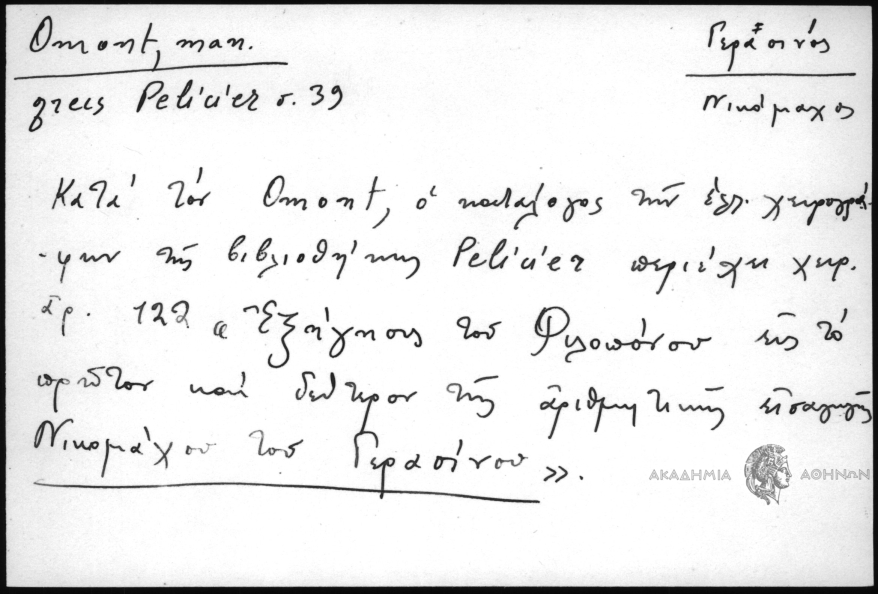 Omont, man.
grecs Pelicier σ. 39
Γερασινός
Νικόμαχος
Κατά τόν Omont, ὁ κατάλογος τῶν ἑλλ. χειρογρά-
-φων τῆς βιβλιοθήκης Pelicier περιέχει χειρ.
ἀρ. 122 « Ἐξήγησις τοῦ Φιλοπόνου εἰς τό
πρῶτον καί δεύτερον τῆς ἀριθμητικῆς εἰσαγωγῆς
Νικομάχου τοῦ Γερασίνου ».
ΑΚΑΔΗΜΙΑ ΑΘΗΝΩΝ